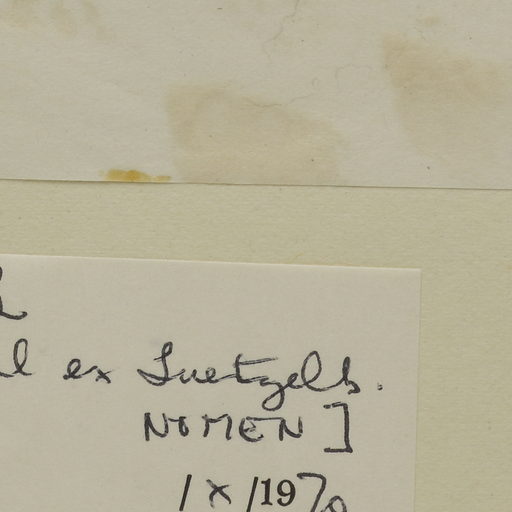 l ex Luetzelb.
NOMEN ]
/ X /1970